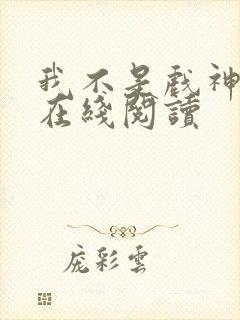 我不是戲神
在綫閱讀
庞彩雲